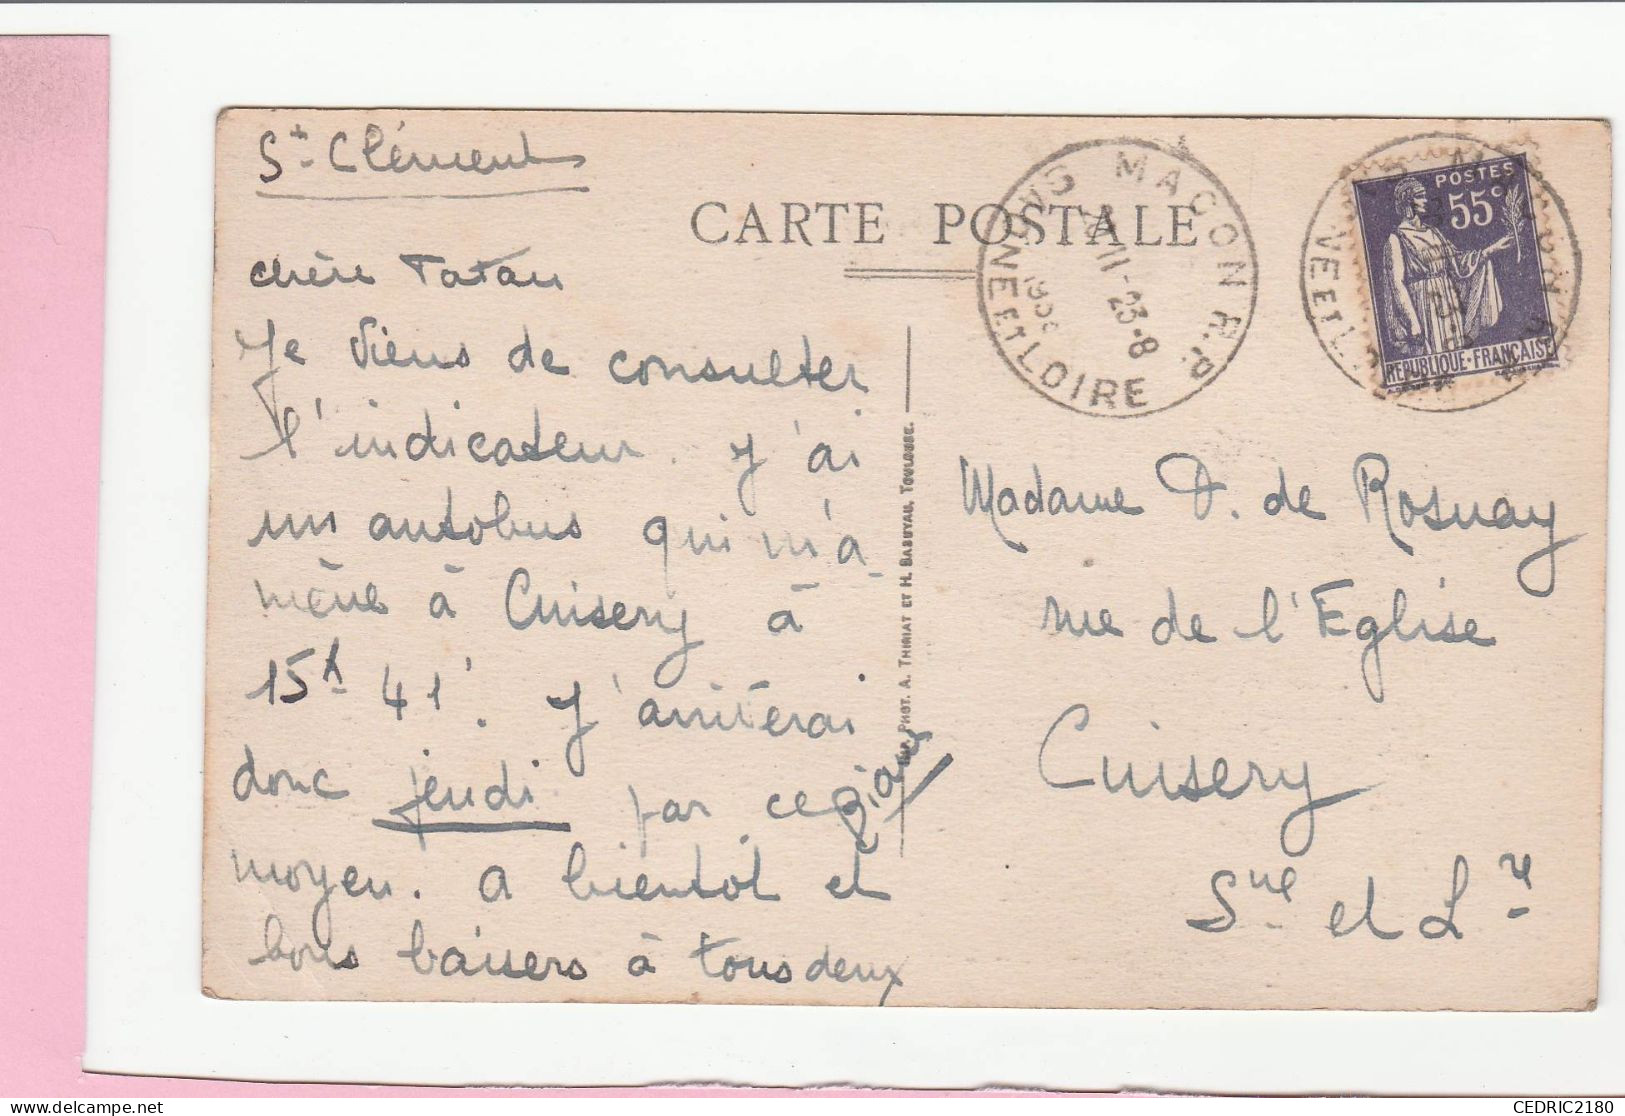 St Clément
CARTE POSTALE
MACON R.P.
SAONE ET LOIRE
23-8
POSTES
55c
REPUBLIQUE·FRANÇAISE
chère Tatan
Je viens de consulter
l'indicateur. J'ai
un autobus qui m'a-
mène à Cuisery à
15h 41'. J'arriverai
donc jeudi par ce
moyen. A bientôt et
bons baisers à tous deux
IMP. PHOT. A. THIRIAT ET H. BASUYAU, TOULOUSE.
Madame D. de Rosnay
rue de l'Eglise
Cuisery
Sne et L
CEDRIC2180